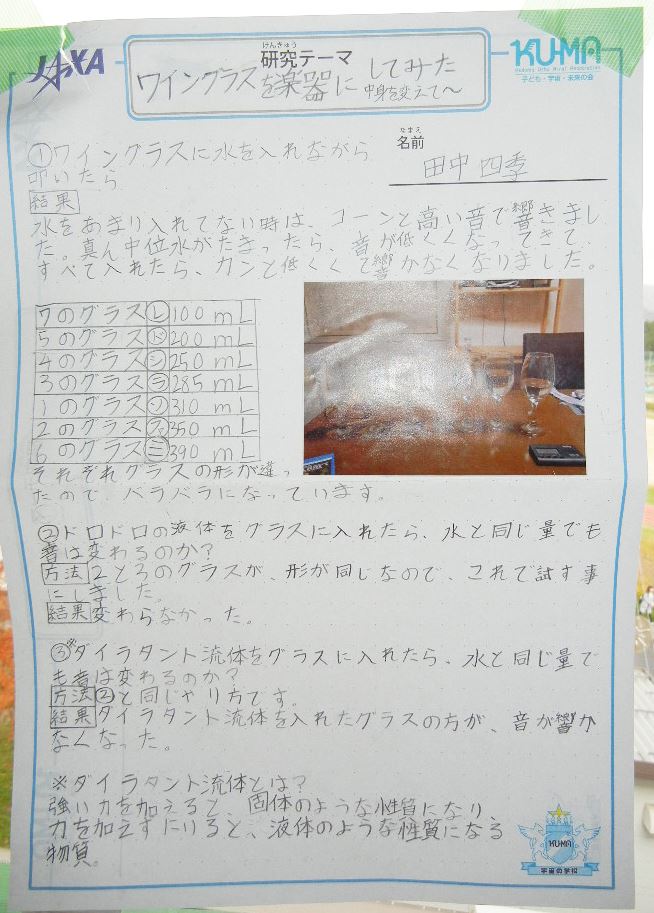 JAXA
けんきゅう
研究テーマ
ワイングラスを楽器にしてみた
中身を変えて～
KU-MA
子ども・宇宙・未来の会
なまえ
名前
田中 四季
①ワイングラスに水を入れながら
叩いたら
結果
水をあまり入れてない時は、コーンと高い音で響きまし
た。真ん中位水がたまったら、音が低くくなってきて、
すべて入れたら、カンと低くくて響かなくなりました。
7のグラス㋹100mL
5のグラス㋣200mL
4のグラス㋛250mL
3のグラス㋶285mL
1のグラスソ310mL
2のグラス㋫350mL
6のグラス㋥390mL
それぞれグラスの形が違っ
たので、バラバラになっています。
②ドロドロの液体をグラスに入れたら、水と同じ量でも
音は変わるのか?
方法2と3のグラスが、形が同じなので、これで試す事
にしました。
結果変わらなかった。
③※ダイラタント流体をグラスに入れたら、水と同じ量で
も音は変わるのか?
方法②と同じやり方です。
結果ダイラタント流体を入れたグラスの方が、音が響か
なくなった。
※ダイラタント流体とは?
強い力を加えると、固体のような性質になり、
力を加えずにいると、液体のような性質になる
物質。
KUMA
宇宙の学校